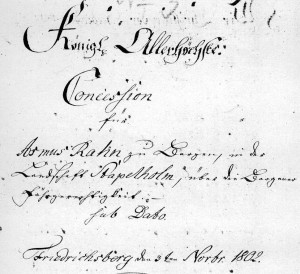 Königl. Allerhöchste
Concession
für
Asmus Rahn zu Bergen, in der
Landschaft Stapelholm, über die Bergener
Fährgerechtigkeit
sub Dato.
Friedrichsberg den 3ten Novbr. 1802.